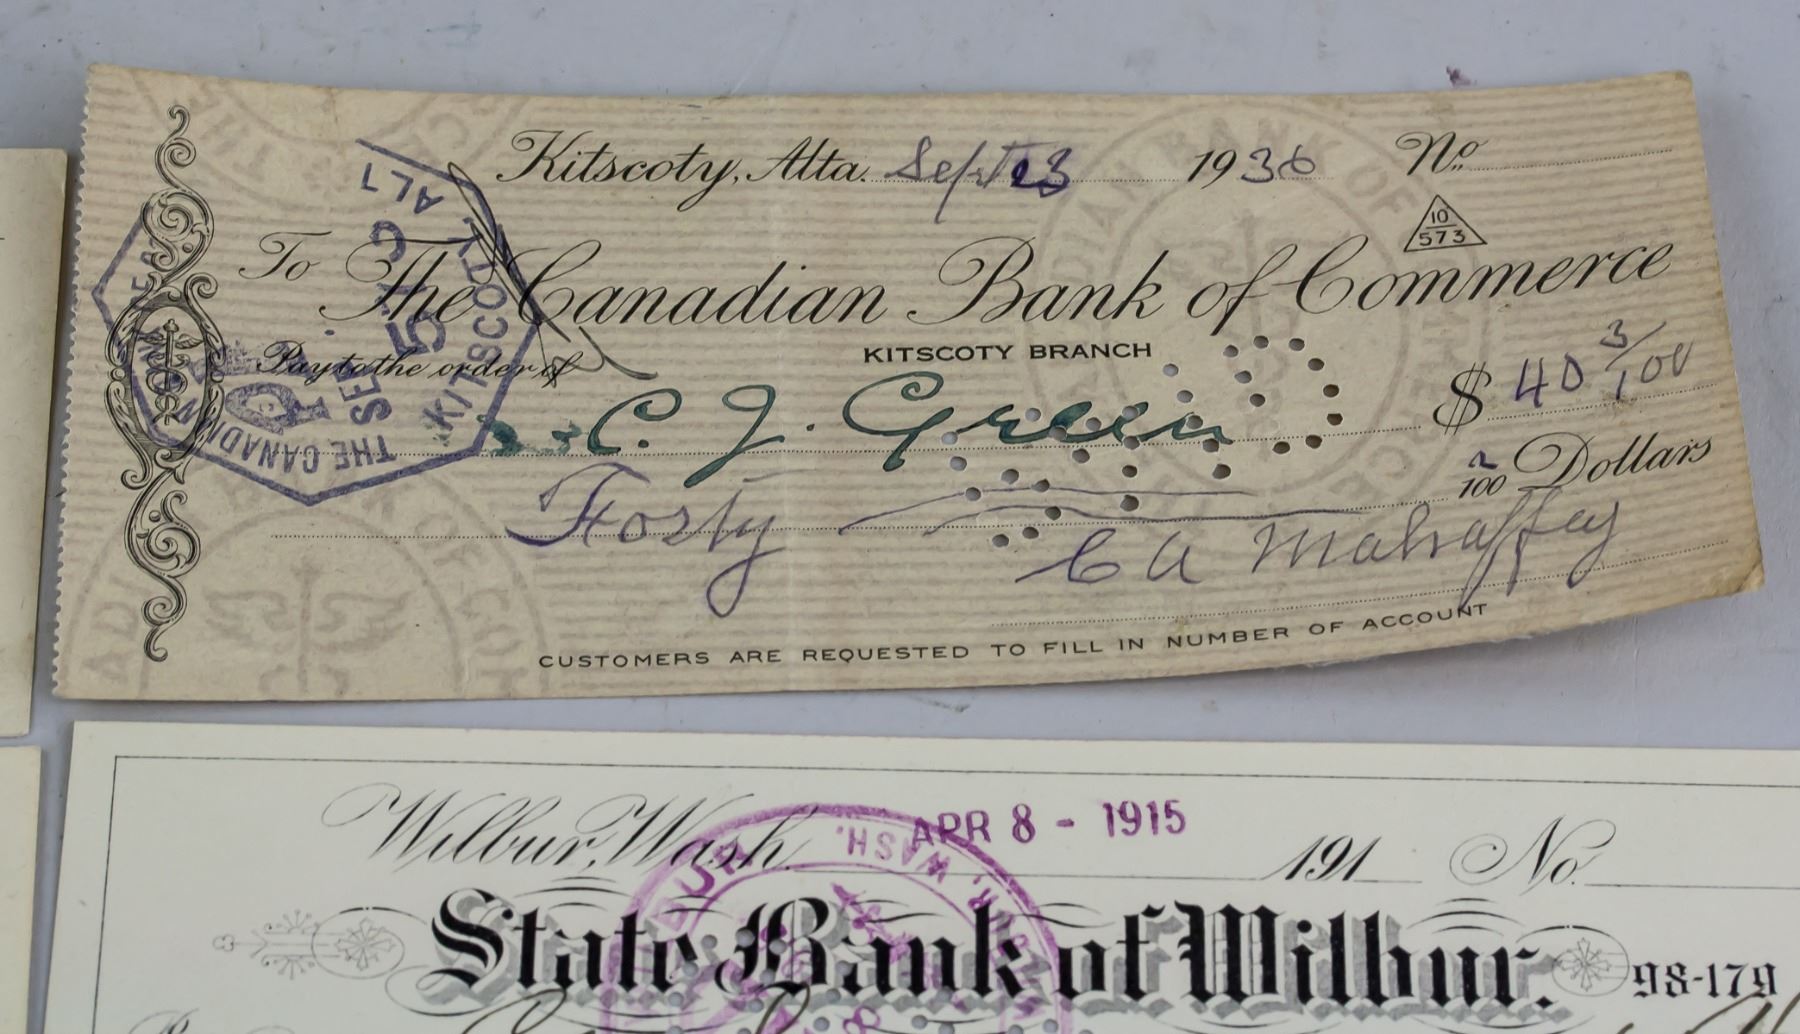 Kitscoty, Alta. Sept 23 1936 No.
10
573
To The Canadian Bank of Commerce
KITSCOTY BRANCH
Pay to the order of
C. J. Green $ 40 3/100
Forty 100 Dollars
C A Mahaffey
CUSTOMERS ARE REQUESTED TO FILL IN NUMBER OF ACCOUNT
THE CANADIAN
KITSCOTY ALT
Wilbur, Wash. APR 8 - 1915 191 No.
State Bank of Wilbur. 98-179
WASH.